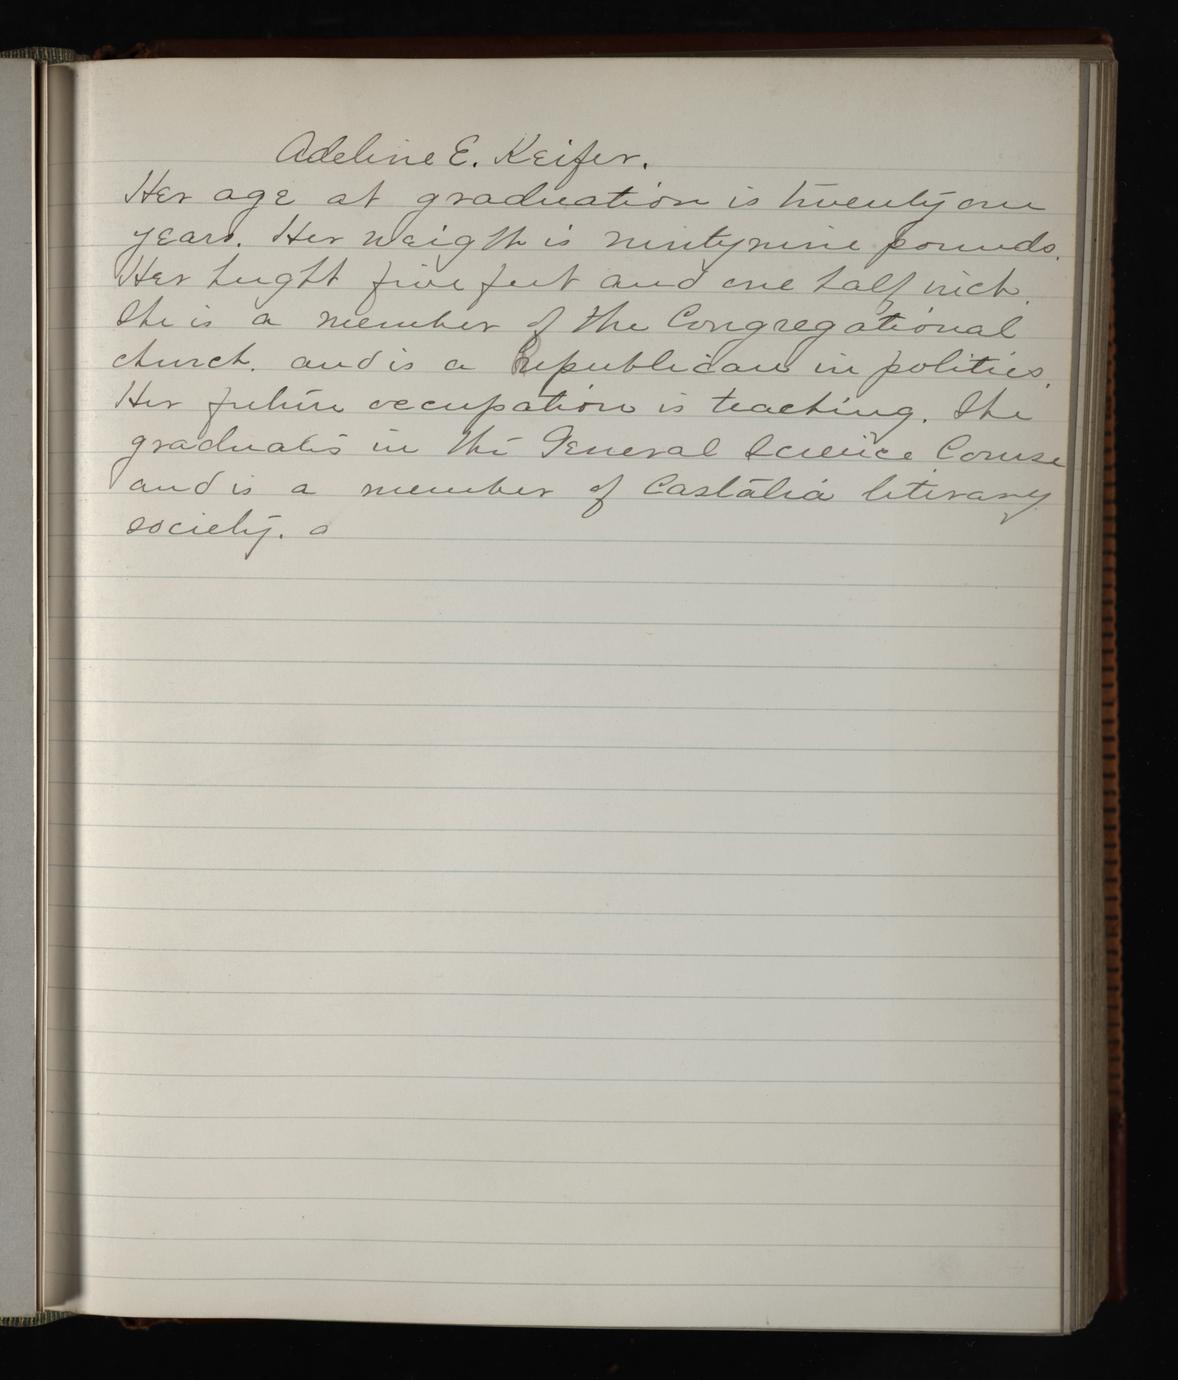 Adeline E. Keifer.
Her age at graduation is twenty one
years. Her weigth is nintynine pounds.
Her hight five feet and one half inch.
She is a member of the Congregational
church. and is a Republican in politics.
Her future occupation is teaching. She
graduates in the General Science Course
and is a member of Castalia literary
society. a